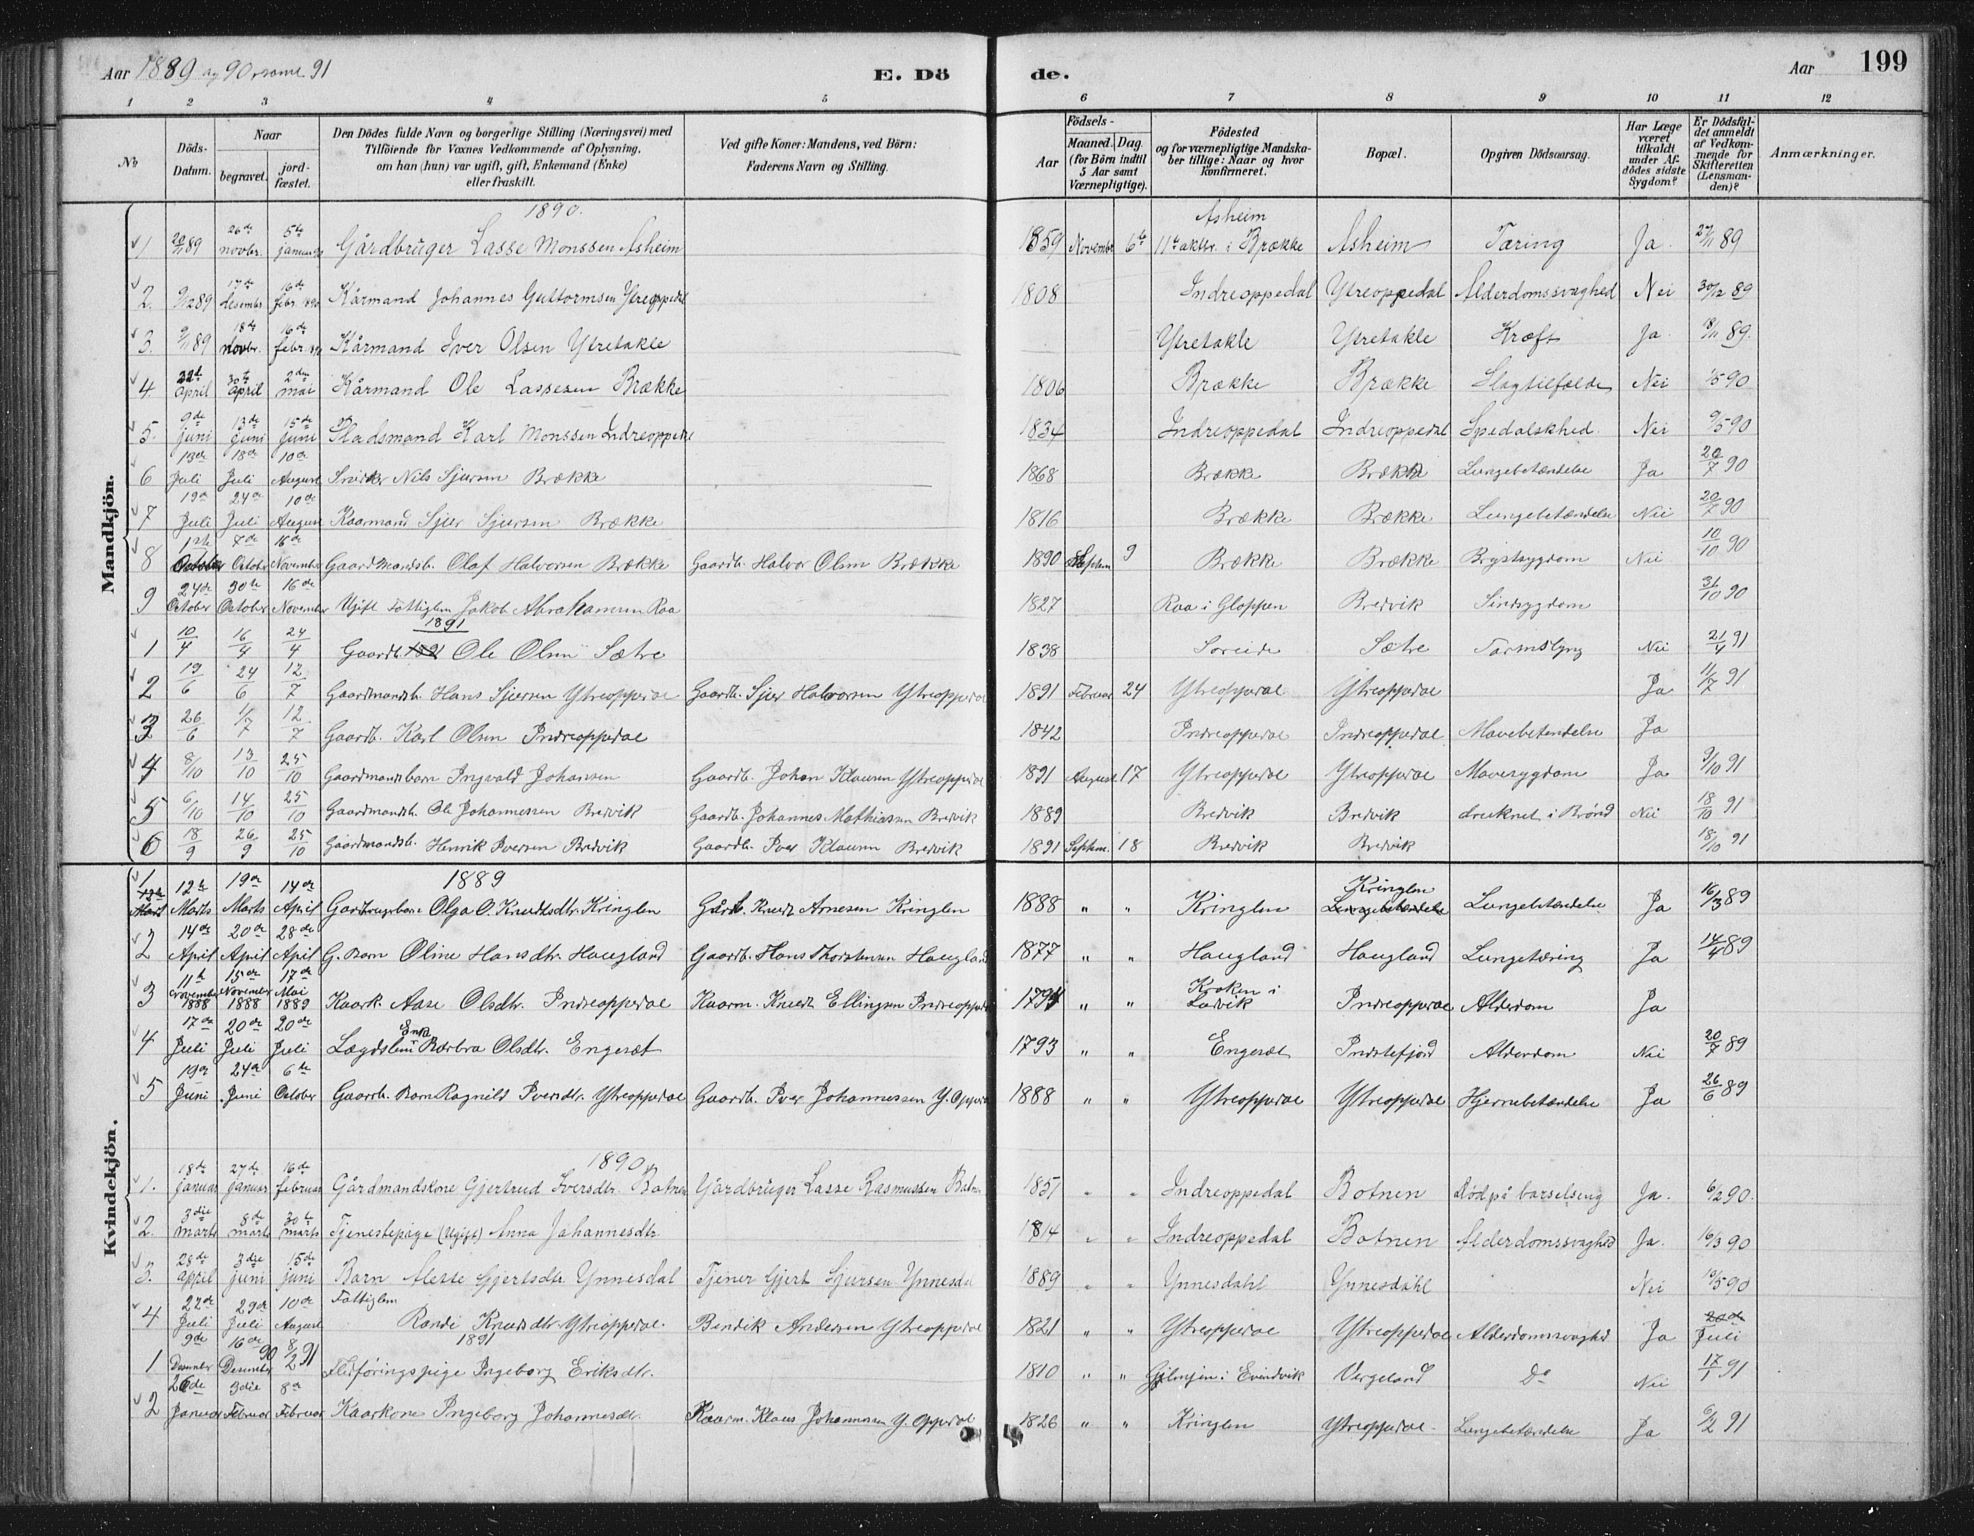 Aar 1889 og 90 samt 91 E. Dö de. Aar 199
1 2 3 4 5 6 7 8 9 10 11 12
No Döds-Datum. Naar begravet. jordfæstet. Den Dödes fulde Navn og borgerlige Stilling (Næringsvei) med Tilföiende for Voxnes Vedkommende af Oplysning, om han (hun) var ugift, gift, Enkemand (Enke) eller fraskilt. Ved gifte Koner: Mandens, ved Börn: Faderens Navn og Stilling. Födsels- Aar Maaned. Dag. (for Börn indtil 5 Aar samt Værnepligtige). Födested og for værnepligtige Mandskaber tillige: Naar og hvor konfirmeret. Bopæl. Opgiven Dödsaarsag. Har Læge været tilkaldt under Afdödes sidste Sygdom? Er Dödsfaldet anmeldt af Vedkommende for Skifteretten (Lensmanden)? Anmærkninger.
Mandkjön.
1890.
1 20/11 89 26de novbr. 5te januar Gårdbruger Lasse Monssen Asheim 1859 Novembr 6te Asheim 11te aktbr. i Brække Asheim Tæring Ja. 27/11 89
2. 9/12 89 17de desembr. 16de febr. 1890 Kårmand Johannes Guttormsen Ytreoppedal 1808 Indreoppedal Ytreoppedal Alderdomssvaghed Nei 30/12 89
3. 9/11 89 18de novbr. 16de febr. Kårmand Iver Olsen Ytretakle Ytretakle Ytretakle Kræft Ja 18/11 89.
4. 22de april 30te april 2den mai Kårmand Ole Lassesen Brække 1806 Brække Brække Slagtilfælde Nei 1/5 90
5. 9de juni 13de juni 15de juni Pladsmand Karl Monssen Indreoppedal 1834 Indreoppedal Indreoppedal Spedalskhed. Nei 9/5 90
6 13de Juli 18de Juli 10de August Nils Sjursen Brække 1868 Brække Brække Lungebetændelse Ja 20/7 90
7 19de Juli 24de Juli 10de August Kaarmand Sjur Sjursen Brække 1816 Brække Brække Lungebetændelse Nei 20/7 90
8 1ste October 7de October 16de November Gaardmandsb. Olaf Halvorsen Brække Gaardb. Halvor Olsen Brække 1890 Septem 9 Brække Brække Brystsygdom Nei 10/10 90
9 24de October 30te October 16de November Ugift Fattiglem Jakob Abrahamsen Raa 1827 Raa i Gloppen Bredvik Sindsygdom 31/10 90
1891
1 10/4 16/4 24/4 Gaardb. 1891 Ole Olsen Sætre 1838 Soreide Sætre Tarmslyng Nei 21/4 91
2 19/6 24/6 12/7 Gaardmandsb. Hans Sjursen Ytreoppedal Gaardb. Sjur Halvorsen Ytreoppedal 1891 Februar 24 Ytreoppedal Ytreoppedal Ja 11/7 91
3 26/6 1/7 12/7 Gaardb. Karl Olsen Indreoppedal 1842 Indreoppedal Indreoppedal Mavebetændelse Ja
4 8/10 13/10 25/10 Gaardmandsbarn Ingvald Johansen Gaardb. Johan Klausen Ytreoppedal 1891 August 17 Ytreoppedal Ytreoppedal Mavesygdom Ja 9/10 91
5 6/10 14/10 25/10 Gaardmandsb. Ole Johannessen Bredvik Gaardb. Johannes Mathiassen Bredvik 1889 Bredvik Bredvik druknet i Brønd Nei 18/10 91
6 18/9 26/9 25/10 Gaardmandsb. Henrik Iversen Bredvik Gaardb. Iver Klausen Bredvik 1891 Septem. 18 Bredvik Bredvik 18/10 91
Kvindekjön.
1889
1 12te Marts 12te Marts 19de Marts 14de April Olga O. Knudtsdtr. Kringlen Gårdb. Knudt Arnesen Kringlen 1888 " " Kringlen Kringlen Lungebetændelse Lungebetændelse Ja 16/3 89
2 14de April 20de April 28de April G. Barn Oline Hansdtr. Haugland Gaardb. Hans Thorstensen Haugland 1877 " " Haugland Haugland Lungetæring Ja 14/4 89
3 11te November 1888 15de November 1888 17de Mai 1889 Kaark. Aase Olsdtr. Indreoppedal Kaarm. Knudt Ellingsen Indreoppedal 1794 " " Kroken i Ladvik Indreoppedal Alderdom Ja
4 17de Juli 20de Juli 20de Juli Lægdslem Enke Barbra Olsdtr. Engesæt 1793 " " Engesæt Indrefjord Alderdom Nei 20/7 89
5 19de Juni 24de Juni 6te October Gaardb. Barn Ragnild Iversdtr. Ytreoppedal Gaardb. Iver Johannessen Y. Oppedal 1888 " " Ytreoppedal Ytreoppedal Hjernebetændelse Ja 26/6 89
1890
1. 18de januar 27de januar 16de februar Gårdmandskone Gjertrud Iversdtr. Botnen Gårdbruger Lasse Rasmussen Botn. 1851 " " Indreoppedal Botnen Død på barselseng Ja. 6/2 90.
2. 3die marts 8de marts 30te marts Tjenestepige (Ugift) Anna Johannesdtr. 1814 " " Indreoppedal Botnen Alderdomssvaghed Ja. 16/3 90
3. 28de april 3die juni 15de juni Barn Alette Gjertsdtr. Ynnesdal Tjener Gjert Sjursen Ynnesdal 1889 " " Ynnesdahl Ynnesdahl Nei 13/5 90
4 22de Juli 29de Juli 10de August Fattiglem Randi Knudsdtr. Ytreoppedal. Bendik Andersen Ytreoppedal 1821 " " Ytreoppedal Ytreoppedal Alderdomssvaghed Ja 20de Juli
1891
1 9de Desember 16de Desember 90 8/2 91 Flidføringspige Ingeborg Eriksdtr. 1810 " " i Evindvik Vergeland Do Nei 17/1 91
2 26de Januar 3die Februar 8de Februar Kaarkone Ingeborg Johannesdtr. Kaarm. Klaus Johannesen Y. Oppedal 1826 " " Kringlen Ytreoppedal. Lungebetændelse Ja 6/2 91